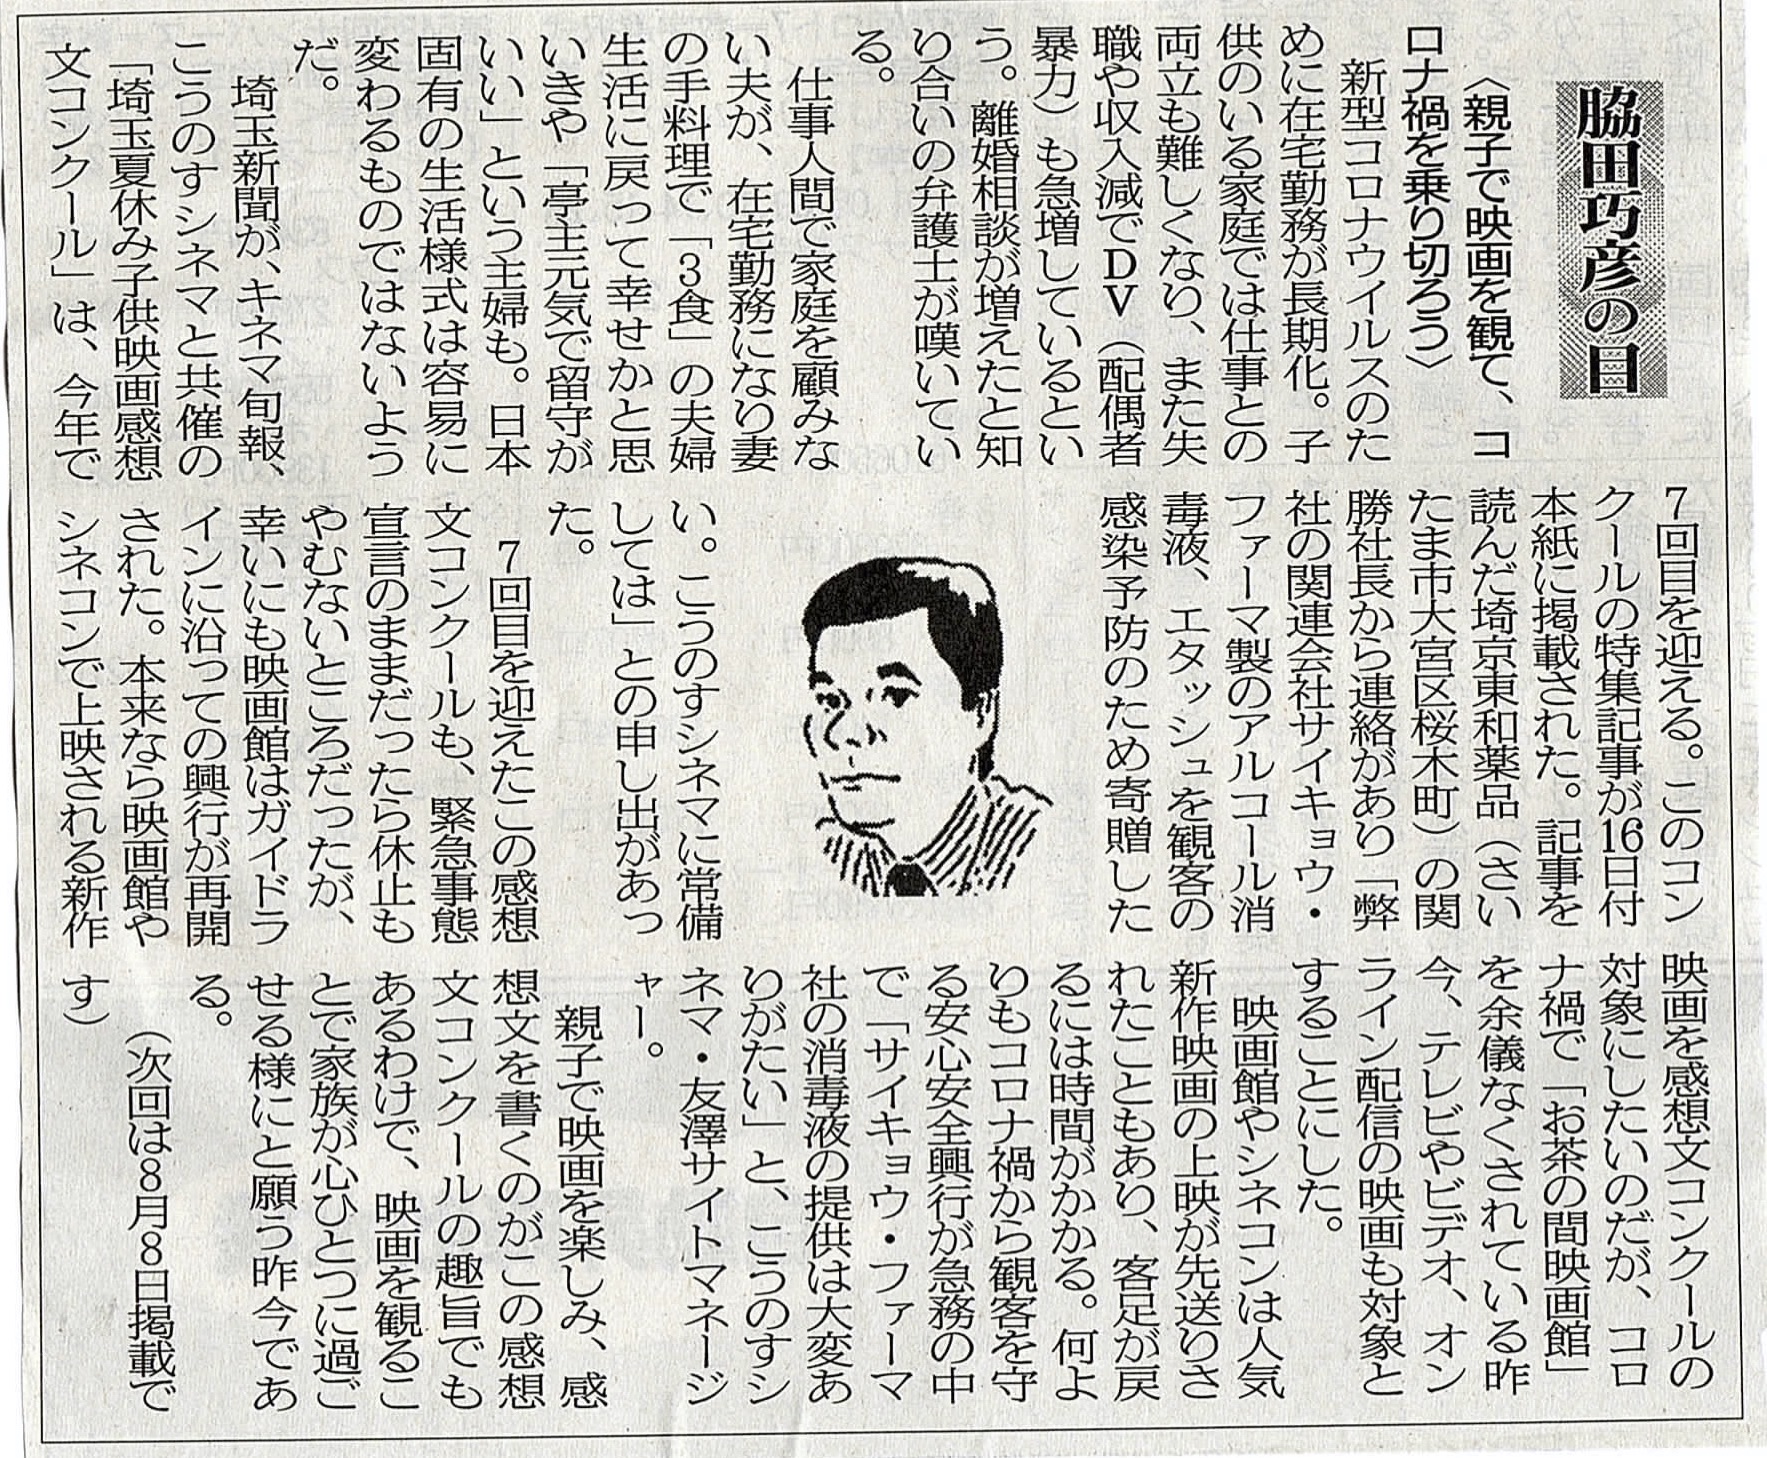 脇田巧彦の目
〈親子で映画を観て、コ
ロナ禍を乗り切ろう〉
新型コロナウイルスのた
めに在宅勤務が長期化。子
供のいる家庭では仕事との
両立も難しくなり、また失
職や収入減でDV(配偶者
暴力)も急増しているとい
う。離婚相談が増えたと知
り合いの弁護士が嘆いてい
る。
仕事人間で家庭を顧みな
い夫が、在宅勤務になり妻
の手料理で「3食」の夫婦
生活に戻って幸せかと思
いきや「亭主元気で留守が
いい」という主婦も。日本
固有の生活様式は容易に
変わるものではないよう
だ。
埼玉新聞が、キネマ旬報、
こうのすシネマと共催の
「埼玉夏休み子供映画感想
文コンクール」は、今年で
7回目を迎える。このコン
クールの特集記事が16日付
本紙に掲載された。記事を
読んだ埼京東和薬品(さい
たま市大宮区桜木町)の関
勝社長から連絡があり「弊
社の関連会社サイキョウ・
ファーマ製のアルコール消
毒液、エタッシュを観客の
感染予防のため寄贈した
い。こうのすシネマに常備
しては」との申し出があっ
た。
7回目を迎えたこの感想
文コンクールも、緊急事態
宣言のままだったら休止も
やむないところだったが、
幸いにも映画館はガイドラ
インに沿っての興行が再開
された。本来なら映画館や
シネコンで上映される新作
映画を感想文コンクールの
対象にしたいのだが、コロ
ナ禍で「お茶の間映画館」
を余儀なくされている昨
今、テレビやビデオ、オン
ライン配信の映画も対象と
することにした。
映画館やシネコンは人気
新作映画の上映が先送りさ
れたこともあり、客足が戻
るには時間がかかる。何よ
りもコロナ禍から観客を守
る安心安全興行が急務の中
で「サイキョウ・ファーマ
社の消毒液の提供は大変あ
りがたい」と、こうのすシ
ネマ・友澤サイトマネージ
ャー。
親子で映画を楽しみ、感
想文を書くのがこの感想
文コンクールの趣旨でも
あるわけで、映画を観るこ
とで家族が心ひとつに過ご
せる様にと願う昨今であ
る。
(次回は8月8日掲載で
す)